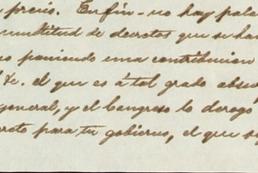 precio. En fin - no hay pala
multitud de decretos que se han
o poniendo una contribucion
&c. el que es á tal grado absur
general, y el Congreso lo derogo
reto para tu gobierno, el que se